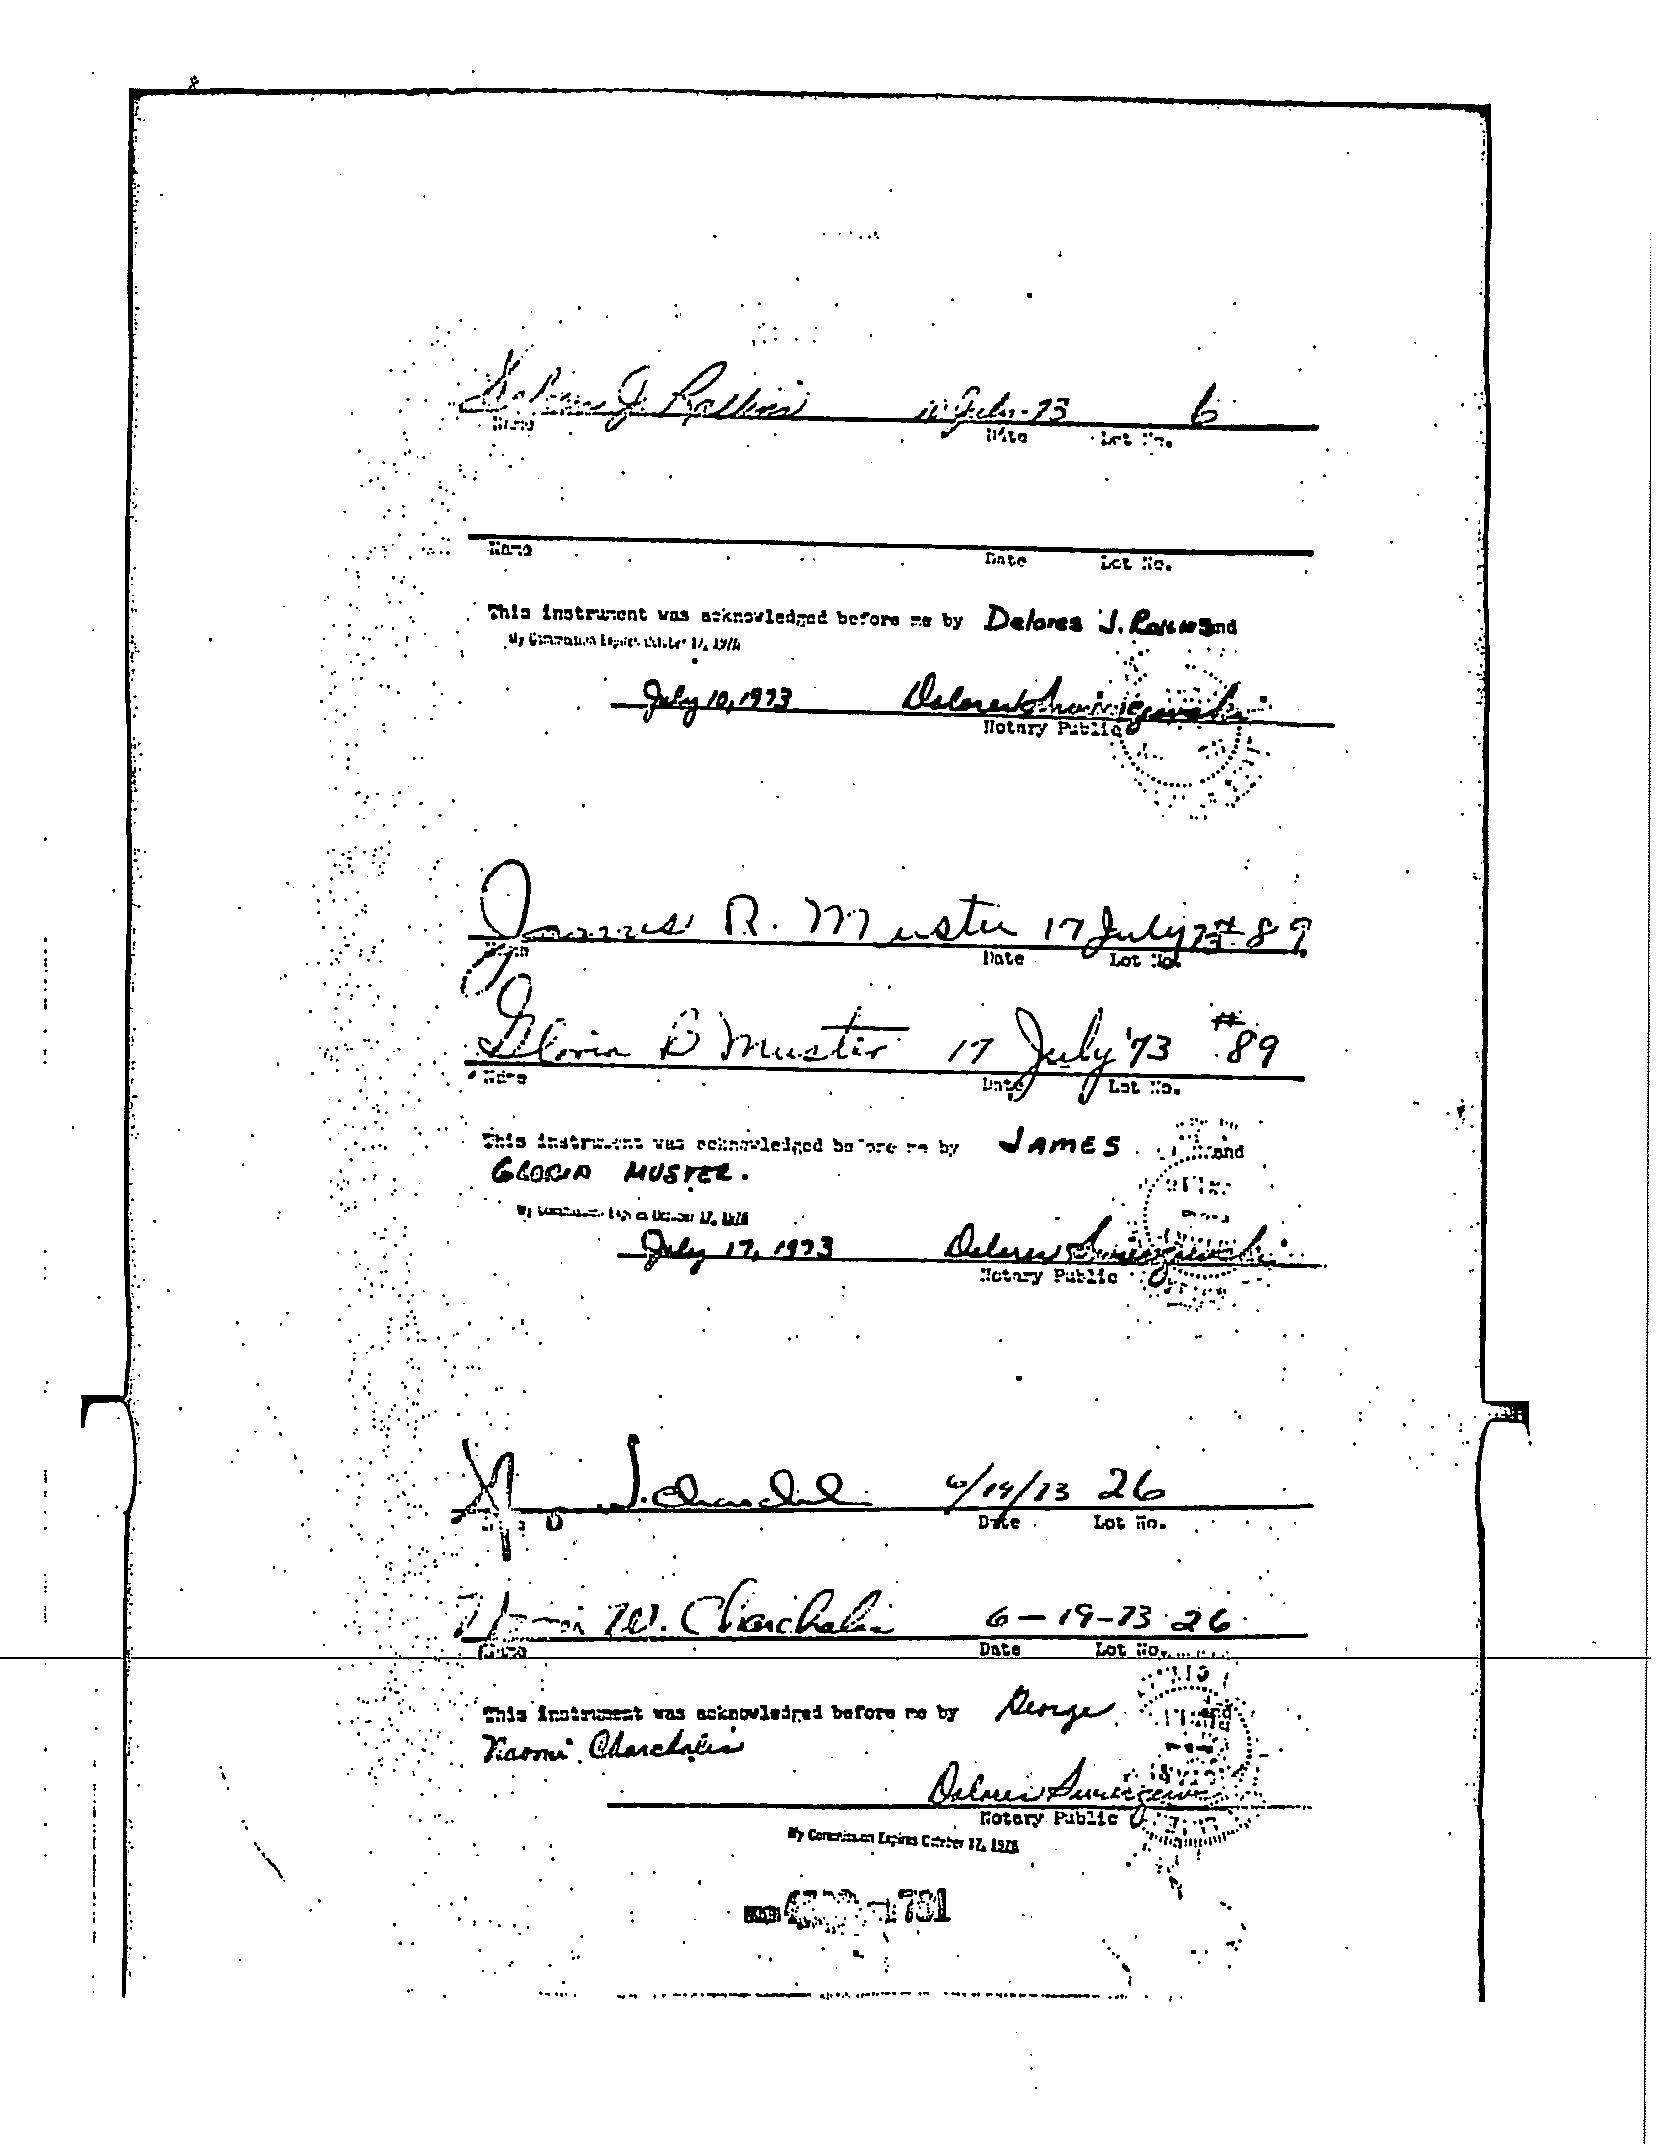 J. 10 July-73 6
Name Date Lot No.
Name Date Lot No.
This instrument was acknowledged before me by Delores J. and
My Commission Expires October 17, 1976
July 10, 1973 Delores
Notary Public
James R. Muster 17 July 73 # 89
Name Date Lot No.
Gloria B Muster 17 July '73 #89
Name Date Lot No.
This instrument was acknowledged before me by JAMES and
GLORIA MUSTER.
My Commission Expires October 17, 1976
July 17, 1973 Delores
Notary Public
6/19/73 26
Date Lot No.
Naomi W. Charchalis 6-19-73 26
Name Date Lot No.
This instrument was acknowledged before me by George and
Naomi Charchalis
Delores
Notary Public
My Commission Expires October 17, 1976
781